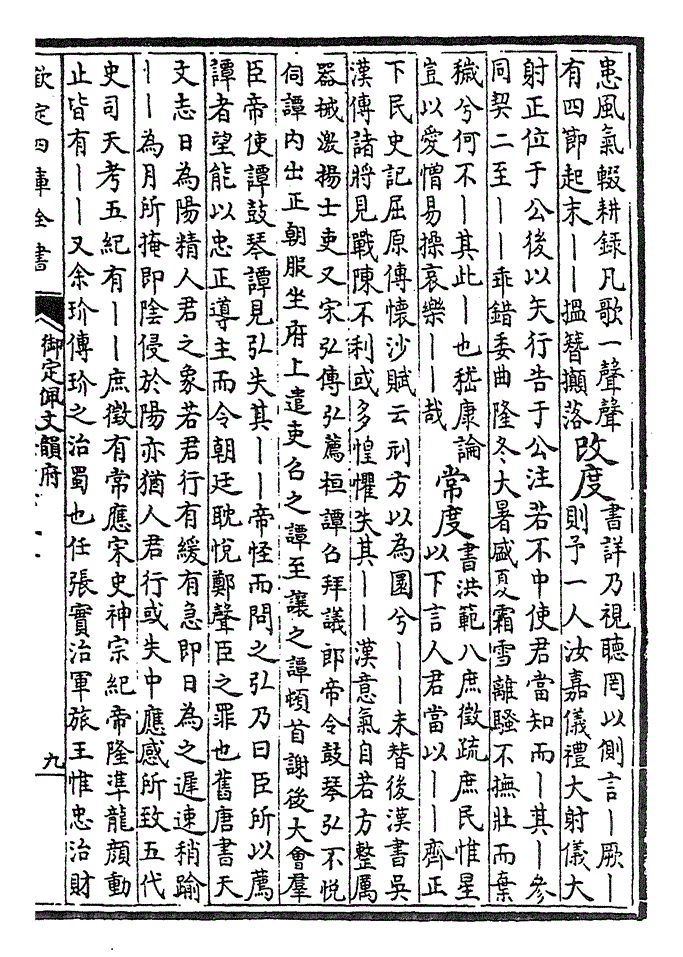 患風氣輟耕錄凡歌一聲聲
有四節起末丨丨搵簪攧落
改度
書詳乃視聽罔以側言丨厥丨
則予一人汝嘉儀禮大射儀大
射正位于公後以矢行告于公注若不中使君當知而丨其丨參
同契二至丨丨乖錯委曲隆冬大暑盛夏霜雪離騷不撫壯而棄
穢兮何不丨其此丨也嵇康論
豈以愛憎易操哀樂丨丨哉
常度
書洪範八庶徵疏庶民惟星
以下言人君當以丨丨齊正
下民史記屈原傳懷沙賦云刓方以為圜兮丨丨未替後漢書吳
漢傳諸將見戰陳不利或多惶懼失其丨丨漢意氣自若方整厲
器械激揚士吏又宋弘傳弘薦桓譚召拜議郎帝令鼓琴弘不悦
伺譚内出正朝服坐府上遣吏召之譚至讓之譚頓首謝後大會羣
臣帝使譚鼓琴譚見弘失其丨丨帝怪而問之弘乃曰臣所以薦
譚者望能以忠正導主而令朝廷耽悦鄭聲臣之罪也舊唐書天
文志日為陽精人君之象若君行有緩有急即日為之遲速稍踰
丨丨為月所掩即陰侵於陽亦猶人君行或失中應感所致五代
史司天考五紀有丨丨庶徵有常應宋史神宗紀帝隆準龍顔動
止皆有丨丨又余玠傳玠之治蜀也任張實治軍旅王惟忠治財
欽定四庫全書
御定佩文韻府
九